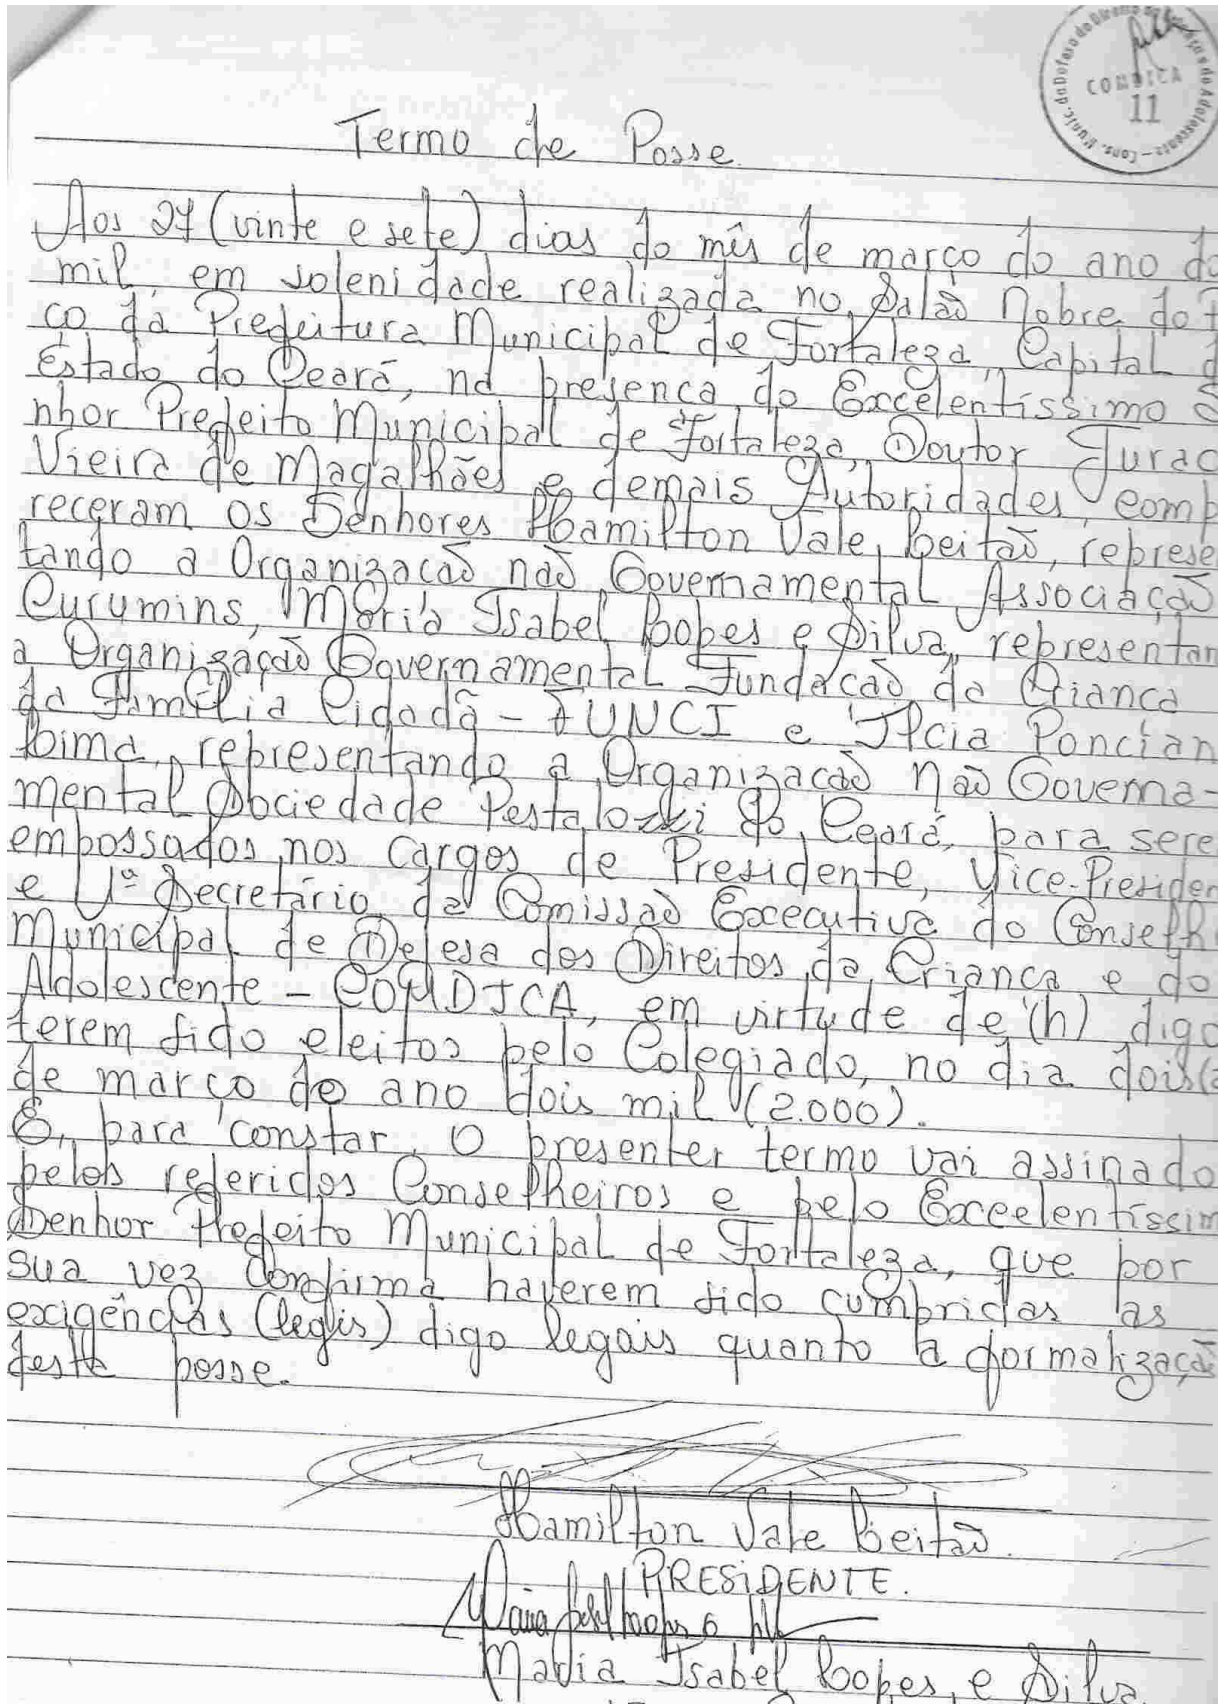 Cons. Munic. da Defesa do Direito da Criança e do Adolescente
COMDICA
11
Termo de Posse.
Aos 27 (vinte e sete) dias do mês de março do ano do
mil, em solenidade realizada no Salão Nobre do P
ço da Prefeitura Municipal de Fortaleza, Capital d
Estado do Ceará, na presença do Excelentíssimo S
nhor Prefeito Municipal de Fortaleza, Doutor Jurac
Vieira de Magalhães e demais Autoridades, comp
receram os Senhores Hamilton Vale Leitão, represe
tando a Organização não Governamental Associação
Curumins, Maria Isabel Lopes e Silva, representan
a Organização Governamental Fundação da Criança
da Família Cidadã - FUNCI e Ilcia Poncian
Lima, representando a Organização Não Governa-
mental Sociedade Pestalozzi do Ceará, para sere
empossados nos cargos de Presidente, Vice-Presiden
e 1ª Secretário da Comissão Executiva do Conselh
Municipal de Defesa dos Direitos da Criança e do
Adolescente - COMDICA, em virtude de (h) digo
terem sido eleitos pelo Colegiado, no dia dois (2
de março do ano dois mil (2.000).
E, para constar, o presenter termo vai assinado
pelos referidos Conselheiros e pelo Excelentíssim
Senhor Prefeito Municipal de Fortaleza, que por
sua vez confirma haverem sido cumpridas as
exigências (legis) digo legais quanto a formalização
deste posse.
Hamilton Vale Leitão.
PRESIDENTE.
Maria Isabel Lopes e Silva
Maria Isabel Lopes e Silva.